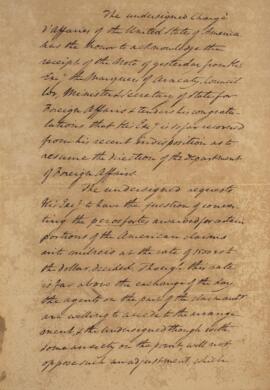 The undersigned Chargé
d'Affaires of the United States of America
has the honor to acknowledge the
receipt of the Note of yesterday from His
Exc.y the Marquez of Aracaty, Council
lor, Minister & Secretary of State for
Foreign Affairs & tenders his congratu-
lations that His Exc.y is so far recovered
from his recent indisposition as to
resume the direction of the Department
of Foreign Affairs.
The undersigned requests
His Exc.y to have the question of conver
ting the pezos fortes awarded for certain
portions of the American claims
into milreis at the rate of
the dollar, decided. Though this rate
is far above the exchange of the day
the agents on the part of the claimants
are willing to accede to the arrange
ment, & the undersigned though with
some anxiety on the point, will not
oppose such an adjustment, which